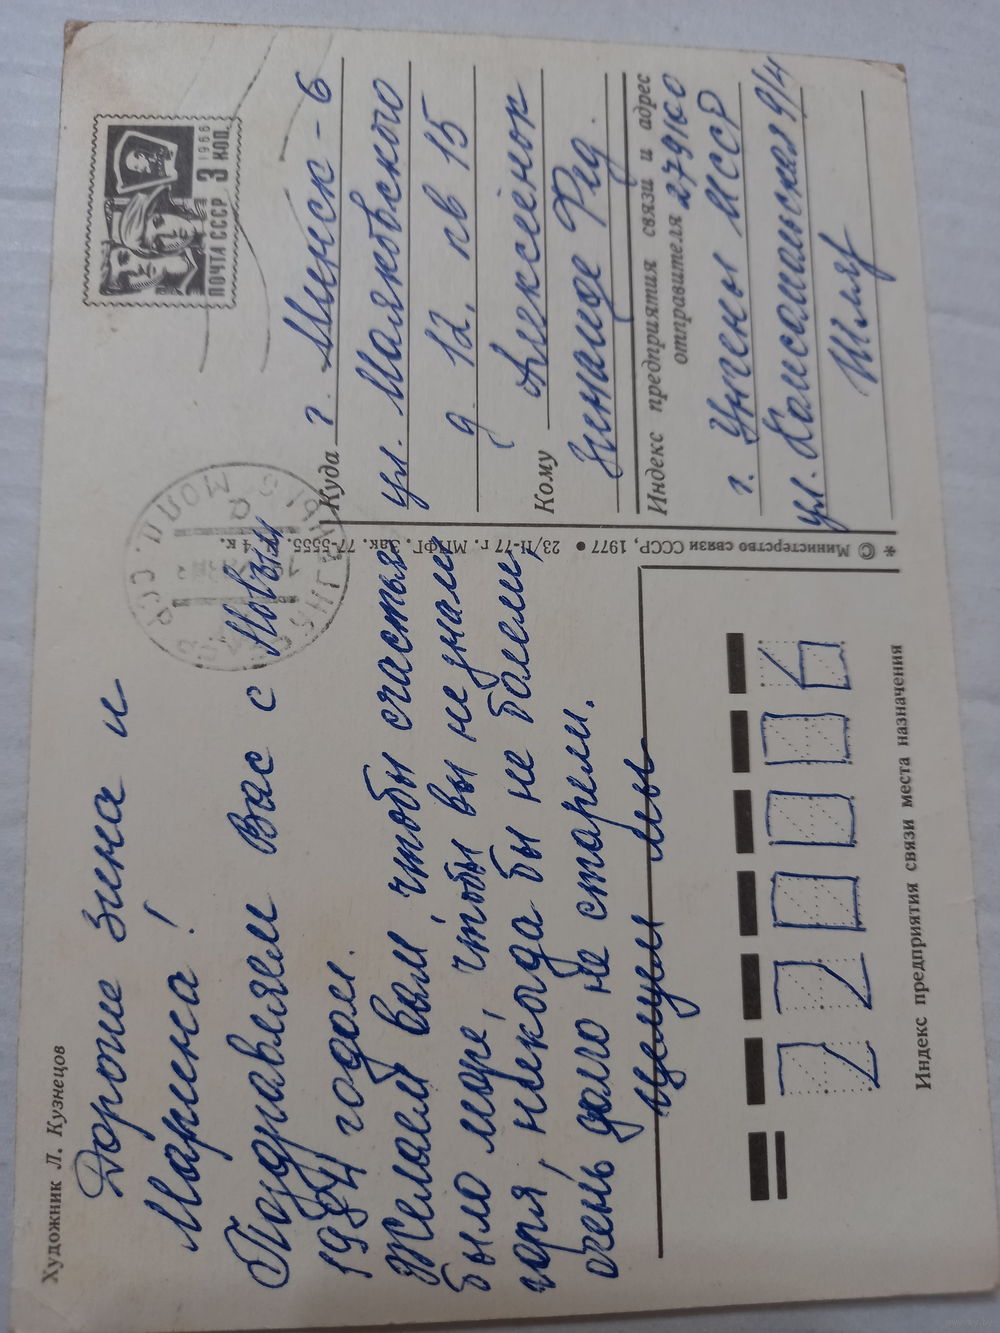 Художник Л. Кузнецов
Дорогие Зина и
Марина!
Поздравляем Вас с Новым
годом.
Желаем вам, чтобы счастья
было море, чтобы вы не знали
горя, никогда бы не болели,
очень долго не старели.
Целуем мы
ПОЧТА СССР 3 КОП.
1966
Куда г. Минск-6
ул. Маяковского
д. 12, кв 15
Кому Алексеенок
Зинаиде
Индекс предприятия связи и адрес
отправителя 279160
г. Унгены МССР
ул. Комсомольская 9/4
© Министерство связи СССР, 1977 • 23/II-77 г. МПФГ. Зак. 77-5555. 4 к.
220006
Индекс предприятия связи места назначения